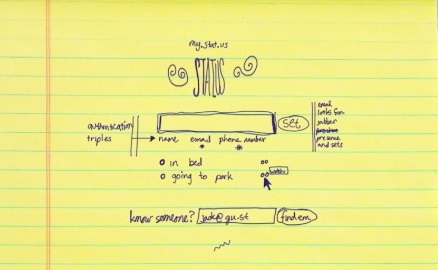 my.stat.us
STATUS
set
authentication
triples
name email phone number
in bed
going to park
email
looks for
jabber
presence
and sets
know someone? jack@gu.st find em